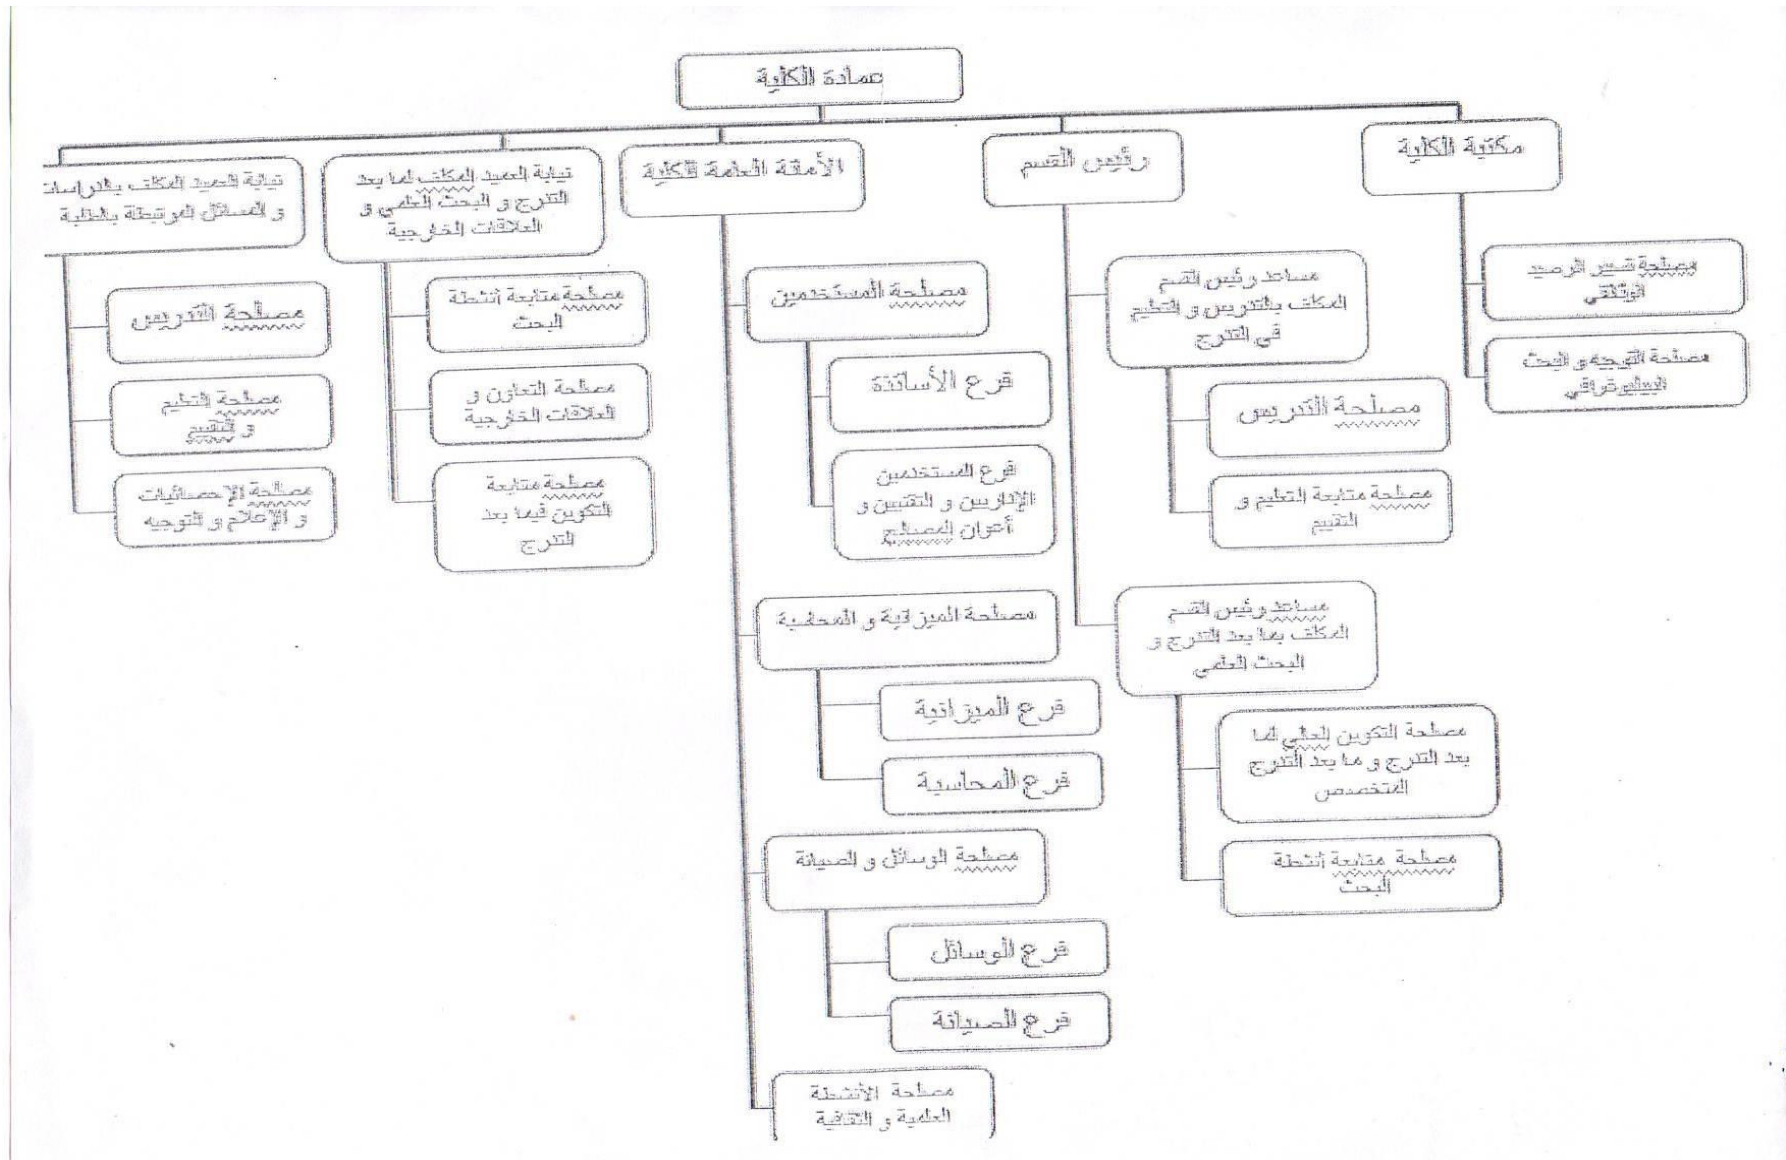 عمادة الكلية
مكتبة الكلية
مصلحة تسيير الرصيد
الوثائقي
مصلحة التوجيه و البحث
البيبليوغرافي
رئيس القسم
مساعد رئيس القسم
المكلف بالتدريس و التعليم
في التدرج
مصلحة التدريس
مصلحة متابعة التعليم و
التقييم
مساعد رئيس القسم
المكلف بما بعد التدرج و
البحث العلمي
مصلحة التكوين العالي لما
بعد التدرج و ما بعد التدرج
المتخصص
مصلحة متابعة أنشطة
البحث
الأمانة العامة للكلية
مصلحة المستخدمين
فرع الأساتذة
فرع المستخدمين
الإداريين و التقنيين و
أعوان المصالح
مصلحة الميزانية و المحاسبة
فرع الميزانية
فرع المحاسبة
مصلحة الوسائل و الصيانة
فرع الوسائل
فرع الصيانة
مصلحة الأنشطة
العلمية و الثقافية
نيابة العميد المكلف لما بعد
التدرج و البحث العلمي و
العلاقات الخارجية
مصلحة متابعة أنشطة
البحث
مصلحة التعاون و
العلاقات الخارجية
مصلحة متابعة
التكوين فيما بعد
التدرج
نيابة العميد المكلف بالدراسات
و المسائل المرتبطة بالطلبة
مصلحة التدريس
مصلحة التعليم
و التقييم
مصلحة الإحصائيات
و الإعلام و التوجيه